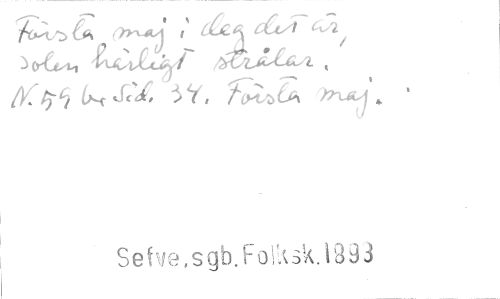 Första maj i dag det är,
solen härligt strålar.
N. 59 Sid. 34. Första maj.
Sefve, sgb. Folksk. 1893